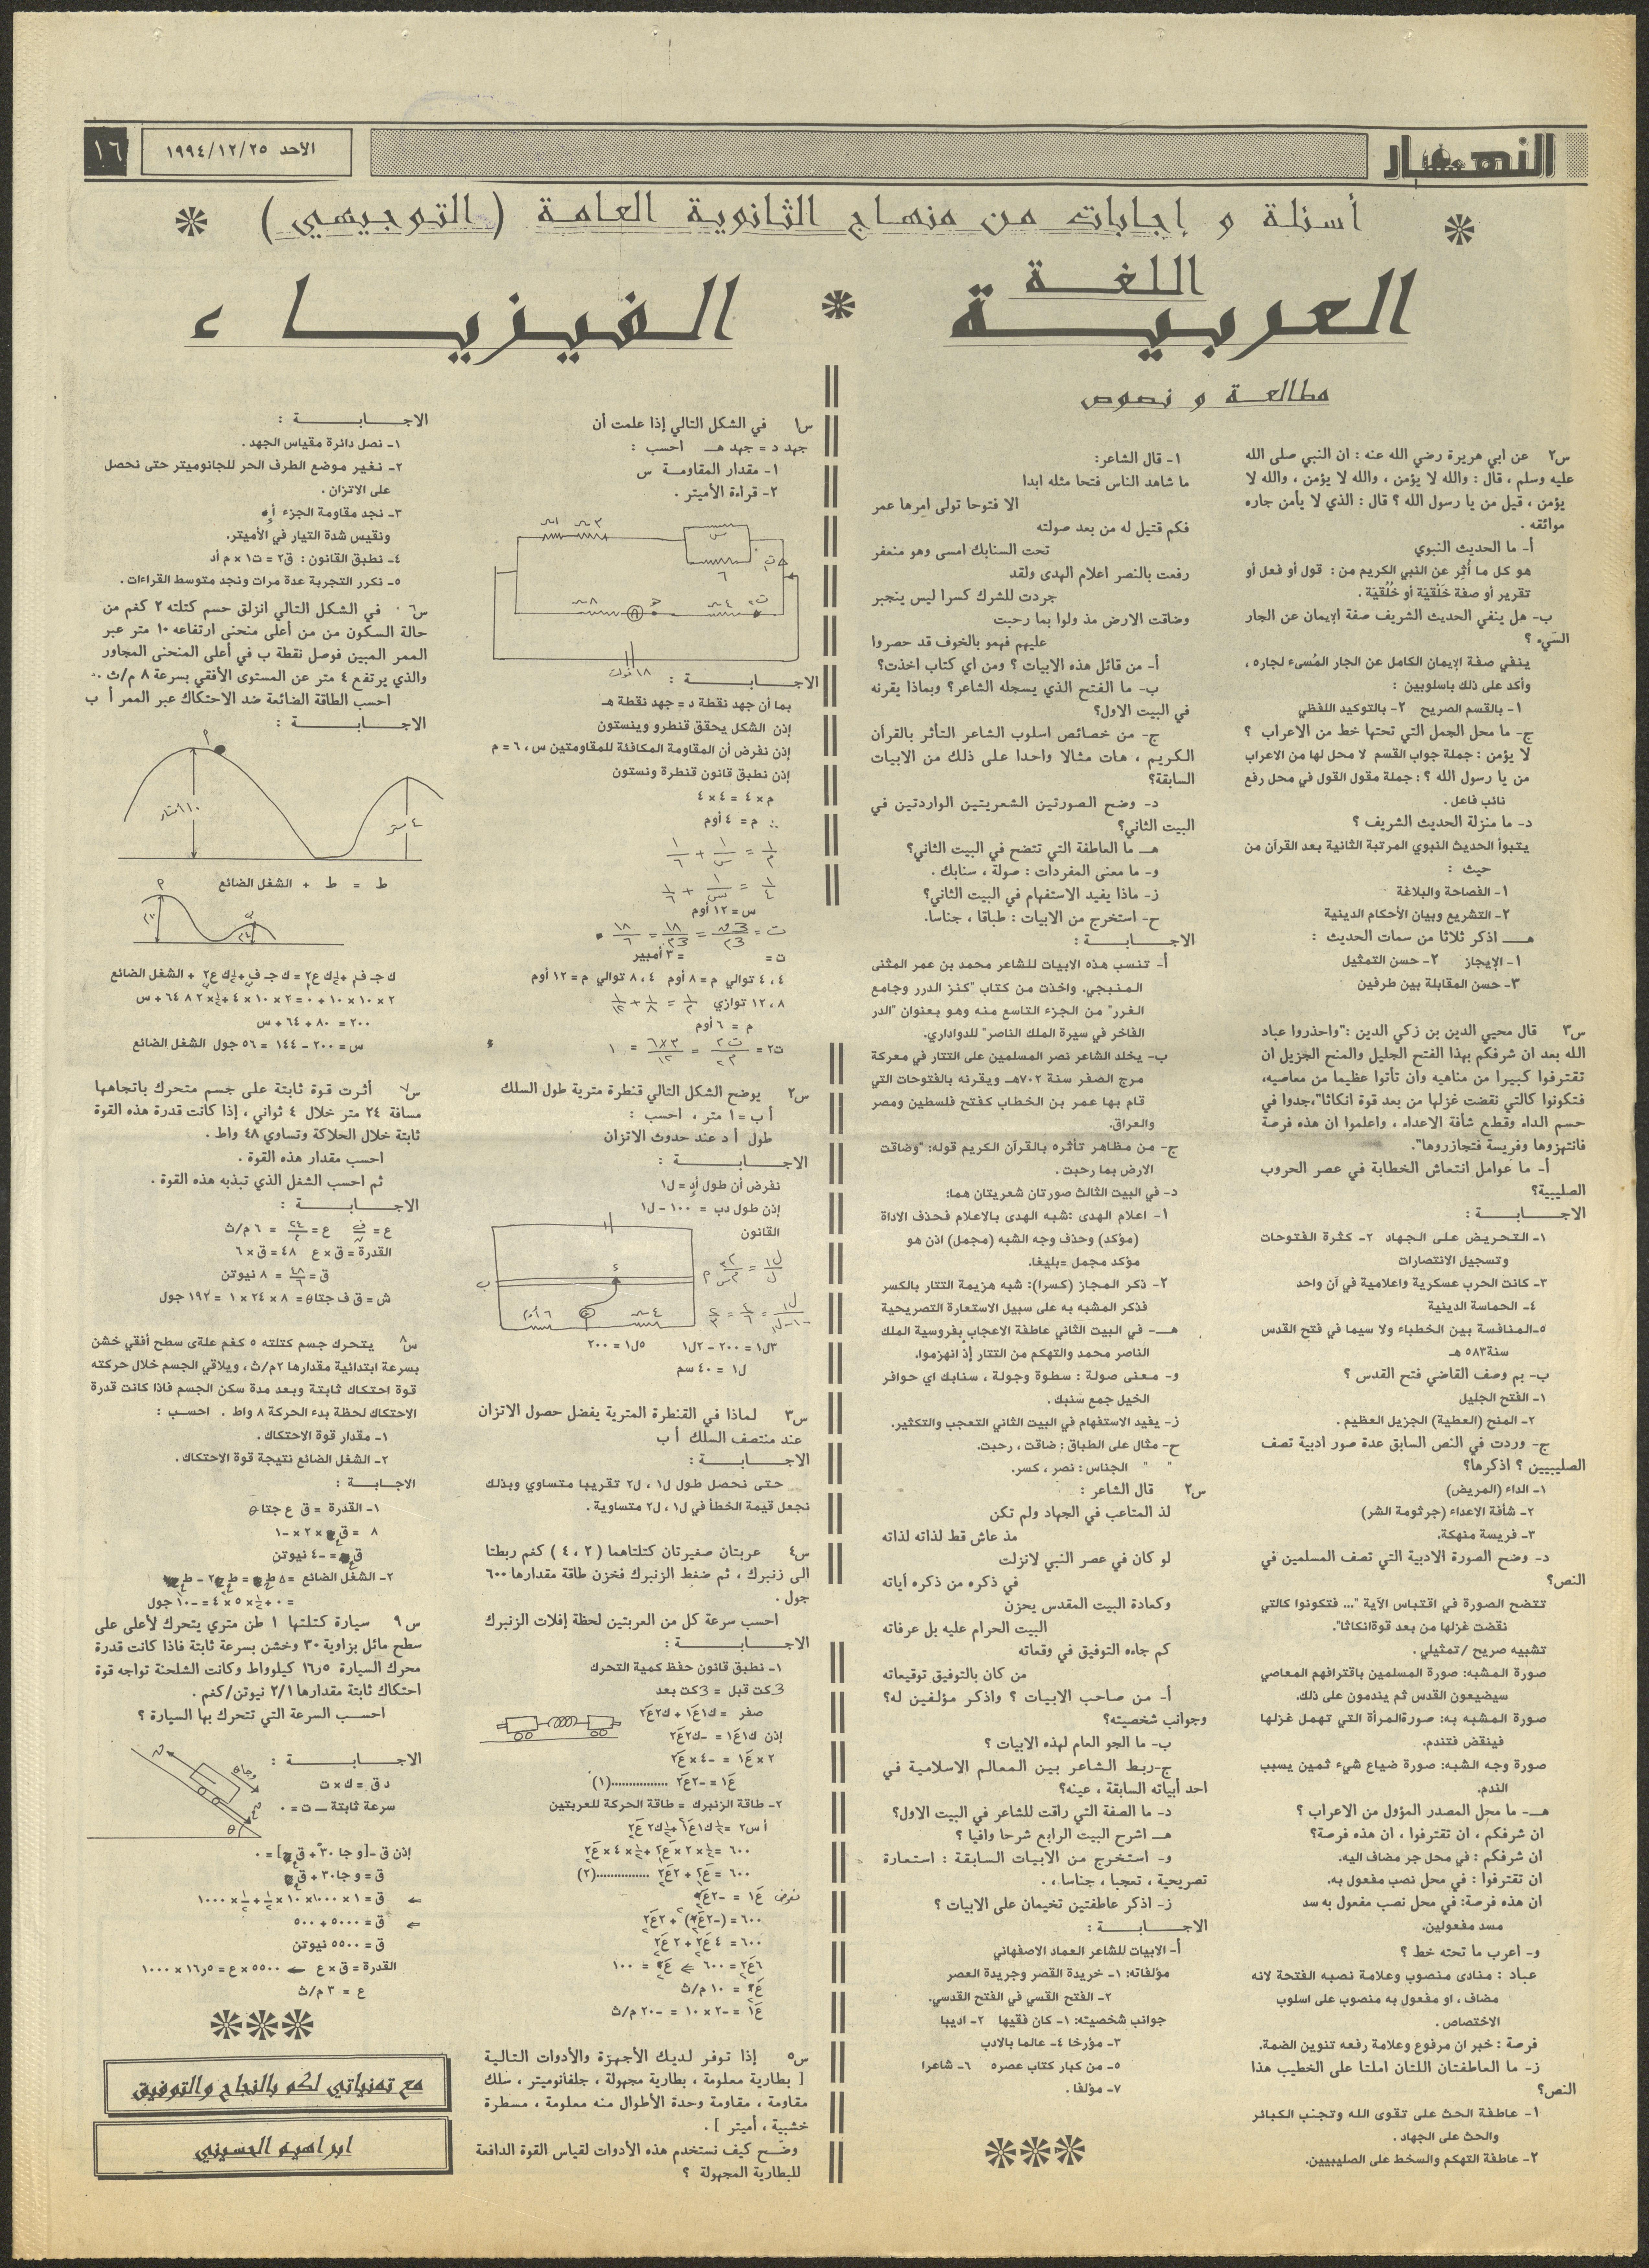 النهار
الأحد ١٩٩٤/١٢/٢٥
١٦
أسئلة و إجابات من منهاج الثانوية العامة (التوجيهي)
اللغة
العربية
الفيزياء
مطالعة و نصوص
س٢ عن ابي هريرة رضي الله عنه : ان النبي صلى الله
عليه وسلم ، قال : والله لا يؤمن ، والله لا يؤمن ، والله لا
يؤمن ، قيل من يا رسول الله ؟ قال : الذي لا يأمن جاره
موائقه .
أ- ما الحديث النبوي
هو كل ما أُثِر عن النبي الكريم من : قول أو فعل أو
تقرير أو صفة خَلْقيّة أو خُلُقيّة .
ب- هل ينفي الحديث الشريف صفة الإيمان عن الجار
السّيء ؟
ينفي صفة الإيمان الكامل عن الجار المُسىء لجاره ،
وأكد على ذلك باسلوبين :
١- بالقسم الصريح ٢- بالتوكيد اللفظي
ج- ما محل الجمل التي تحتها خط من الاعراب ؟
لا يؤمن : جملة جواب القسم لا محل لها من الاعراب
من يا رسول الله ؟ : جملة مقول القول في محل رفع
نائب فاعل .
د- ما منزلة الحديث الشريف ؟
يتبوأ الحديث النبوي المرتبة الثانية بعد القرآن من
حيث :
١- الفصاحة والبلاغة
٢- التشريع وبيان الأحكام الدينية
هـ اذكر ثلاثا من سمات الحديث :
١- الإيجاز ٢- حسن التمثيل
٣- حسن المقابلة بين طرفين
س٣ قال محيي الدين بن زكي الدين :"واحذروا عباد
الله بعد ان شرفكم بهذا الفتح الجليل والمنح الجزيل ان
تقترفوا كبيرا من مناهيه وان تأتوا عظيما من معاصيه،
فتكونوا كالتي نقضت غزلها من بعد قوة انكاثا"،جدوا في
حسم الداء وقطع شأفة الاعداء ، واعلموا ان هذه فرصة
فانتهزوها وفريسة فتجازروها".
أ- ما عوامل انتعاش الخطابة في عصر الحروب
الصليبية؟
الاجـــابـــة :
١- التحريض على الجهاد ٢- كثرة الفتوحات
وتسجيل الانتصارات
٣- كانت الحرب عسكرية واعلامية في آن واحد
٤- الحماسة الدينية
٥-المنافسة بين الخطباء ولا سيما في فتح القدس
سنة٥٨٣ هـ
ب- بم وصف القاضي فتح القدس ؟
١- الفتح الجليل
٢- المنح (العطية) الجزيل العظيم .
ج- وردت في النص السابق عدة صور ادبية تصف
الصليبيين ؟ اذكرها؟
١- الداء (المريض)
٢- شأفة الاعداء (جرثومة الشر)
٣- فريسة منهكة.
د- وضح الصورة الادبية التي تصف المسلمين في
النص؟
تتضح الصورة في اقتباس الآية "... فتكونوا كالتي
نقضت غزلها من بعد قوةانكاثا".
تشبيه صريح /تمثيلي .
صورة المشبه: صورة المسلمين باقترافهم المعاصي
سيضيعون القدس ثم يندمون على ذلك.
صورة المشبه به: صورةالمرأة التي تهمل غزلها
فينقض فتندم.
صورة وجه الشبه: صورة ضياع شيء ثمين يسبب
الندم.
هـ- ما محل المصدر المؤول من الاعراب ؟
ان شرفكم ، ان تقترفوا ، ان هذه فرصة؟
ان شرفكم : في محل جر مضاف اليه.
ان تقترفوا : في محل نصب مفعول به.
ان هذه فرصة: في محل نصب مفعول به سد
مسد مفعولين.
و- اعرب ما تحته خط ؟
عباد : منادى منصوب وعلامة نصبه الفتحة لانه
مضاف ، او مفعول به منصوب على اسلوب
الاختصاص .
فرصة : خبر ان مرفوع وعلامة رفعه تنوين الضمة.
ز- ما العاطفتان اللتان املتا على الخطيب هذا
النص؟
١- عاطفة الحث على تقوى الله وتجنب الكبائر
والحث على الجهاد .
٢- عاطفة التهكم والسخط على الصليبيين.
١- قال الشاعر:
ما شاهد الناس فتحا مثله ابدا
الا فتوحا تولى امرها عمر
فكم قتيل له من بعد صولته
تحت السنابك امسى وهو منعفر
رفعت بالنصر اعلام الهدى ولقد
جردت للشرك كسرا ليس ينجبر
وضاقت الارض مذ ولوا بما رحبت
عليهم فهمو بالخوف قد حصروا
أ- من قائل هذه الابيات ؟ ومن اي كتاب اخذت؟
ب- ما الفتح الذي يسجله الشاعر؟ وبماذا يقرنه
في البيت الاول؟
ج- من خصائص اسلوب الشاعر التأثر بالقرآن
الكريم ، هات مثالا واحدا على ذلك من الابيات
السابقة؟
د- وضح الصورتين الشعريتين الواردتين في
البيت الثاني؟
هـ ما العاطفة التي تتضح في البيت الثاني؟
و- ما معنى المفردات : صولة ، سنابك .
ز- ماذا يفيد الاستفهام في البيت الثاني؟
ح- استخرج من الابيات : طباقا ، جناسا.
الاجـــابـــة :
أ- تنسب هذه الابيات للشاعر محمد بن عمر المثنى
المنبجي. واخذت من كتاب "كنز الدرر وجامع
الغرر" من الجزء التاسع منه وهو بعنوان "الدر
الفاخر في سيرة الملك الناصر" للدواداري.
ب- يخلد الشاعر نصر المسلمين على التتار في معركة
مرج الصفر سنة ٧٠٢هـ ويقرنه بالفتوحات التي
قام بها عمر بن الخطاب كفتح فلسطين ومصر
والعراق.
ج- من مظاهر تأثره بالقرآن الكريم قوله: "وضاقت
الارض بما رحبت .
د- في البيت الثالث صورتان شعريتان هما:
١- اعلام الهدى :شبه الهدى بالاعلام فحذف الاداة
(مؤكد) وحذف وجه الشبه (مجمل) اذن هو
مؤكد مجمل =بليغا.
٢- ذكر المجاز (كسرا): شبه هزيمة التتار بالكسر
فذكر المشبه به على سبيل الاستعارة التصريحية
هـ- في البيت الثاني عاطفة الاعجاب بفروسية الملك
الناصر محمد والتهكم من التتار إذ انهزموا.
و- معنى صولة : سطوة وجولة ، سنابك اي حوافر
الخيل جمع سنبك .
ز- يفيد الاستفهام في البيت الثاني التعجب والتكثير.
ح- مثال على الطباق : ضاقت ، رحبت.
" " الجناس : نصر ، كسر.
س٢ قال الشاعر :
لذ المتاعب في الجهاد ولم تكن
مذ عاش قط لذاته لذاته
لو كان في عصر النبي لانزلت
في ذكره من ذكره أياته
وكعادة البيت المقدس يحزن
البيت الحرام عليه بل عرفاته
كم جاءه التوفيق في وقعاته
من كان بالتوفيق توقيعاته
أ- من صاحب الابيات ؟ واذكر مؤلفين له؟
وجوانب شخصيته؟
ب- ما الجو العام لهذه الابيات ؟
ج-ربط الشاعر بين المعالم الاسلامية في
احد أبياته السابقة ، عينه؟
د- ما الصفة التي راقت للشاعر في البيت الاول؟
هـ اشرح البيت الرابع شرحا وافيا ؟
و- استخرج من الابيات السابقة : استعارة
تصريحية ، تعجبا ، جناسا، .
ز- اذكر عاطفتين تخيمان على الابيات ؟
الاجـــابـــة :
أ- الابيات للشاعر العماد الاصفهاني
مؤلفاته: ١- خريدة القصر وجريدة العصر
٢- الفتح القسي في الفتح القدسي.
جوانب شخصيته: ١- كان فقيها ٢- اديبا
٣- مؤرخا ٤- عالما بالادب
٥- من كبار كتاب عصره ٦- شاعرا
٧- مؤلفا .
س١ في الشكل التالي إذا علمت أن
جهد د = جهد هـ احسب :
١- مقدار المقاومة س
٢- قراءة الأميتر .
١٨ فولت
الاجـــابـــة :
بما أن جهد نقطة د = جهد نقطة هـ
إذن الشكل يحقق قنطرو وينستون
إذن نفرض أن المقاومة المكافئة للمقاومتين س ، ٦ = م
إذن نطبق قانون قنطرة ونستون
م × ٤ = ٤ × ٤
∴ م = ٤ أوم
س = ١٢ أوم
ت = = ٣ أمبير
٤ ، ٤ توالي م = ٨ أوم ٤ ، ٨ توالي م = ١٢ أوم
٨ ، ١٢ توازي
م = ٦ أوم
س٢ يوضح الشكل التالي قنطرة مترية طول السلك
أ ب = ١ متر ، احسب :
طول أ د عند حدوث الاتزان
الاجـــابـــة :
نفرض أن طول أد = ل١
إذن طول دب = ١٠٠ - ل١
القانون
٣ل١ = ٢٠٠ - ٢ل١ ٥ل١ = ٢٠٠
ل١ = ٤٠ سم
س٣ لماذا في القنطرة المترية يفضل حصول الاتزان
عند منتصف السلك أ ب
الاجـــابـــة :
حتى نحصل طول ل١ ، ل٢ تقريبا متساوي وبذلك
نجعل قيمة الخطأ في ل١ ، ل٢ متساوية .
س٤ عربتان صغيرتان كتلتاهما ( ٢ ، ٤ ) كغم ربطتا
الى زنبرك ، ثم ضغط الزنبرك فخزن طاقة مقدارها ٦٠٠
جول .
احسب سرعة كل من العربتين لحظة إفلات الزنبرك
الاجـــابـــة :
١- نطبق قانون حفظ كمية التحرك
كت قبل = كت بعد
صفر = ك١ع١ + ك٢ع٢
إذن ك١ع١ = -ك٢ع٢
٢ × ع١ = -٤ × ع٢
ع١ = -٢ع٢ ................(١)
٢- طاقة الزنبرك = طاقة الحركة للعربتين
٦٠٠ = ع١٢ + ٢ع٢٢ ...............(٢)
نعوض ع١ = -٢ع٢
٦٠٠ = (-٢ع٢)٢ + ٢ع٢٢
٦٠٠ = ٤ع٢ + ٢ع٢
٦ع٢ = ٦٠٠ ⇐ ع٢ = ١٠٠
ع٢ = ١٠ م/ث
ع١ = -٢ × ١٠ = -٢٠ م/ث
س٥ إذا توفر لديك الأجهزة والأدوات التالية
[ بطارية معلومة ، بطارية مجهولة ، جلفانوميتر ، سلك
مقاومة ، مقاومة وحدة الأطوال منه معلومة ، مسطرة
خشبية ، أميتر ] .
وضّح كيف نستخدم هذه الأدوات لقياس القوة الدافعة
للبطارية المجهولة ؟
الاجـــابـــة :
١- نصل دائرة مقياس الجهد .
٢- نغير موضع الطرف الحر للجانوميتر حتى نحصل
على الاتزان .
٣- نجد مقاومة الجزء أد
ونقيس شدة التيار في الأميتر.
٤- نطبق القانون : ق٢ = ت١ × م أد
٥- نكرر التجربة عدة مرات ونجد متوسط القراءات .
س٦ في الشكل التالي انزلق حسم كتلته ٢ كغم من
حالة السكون من من أعلى منحنى ارتفاعه ١٠ متر عبر
الممر المبين فوصل نقطة ب في أعلى المنحنى المجاور
والذي يرتفع ٤ متر عن المستوى الأفقي بسرعة ٨ م/ث ..
احسب الطاقة الضائعة ضد الاحتكاك عبر الممر أ ب
الاجـــابـــة :
١٠ امتار
٤ متر
ط = ط + الشغل الضائع
٢٠٠ = ٨٠ + ٦٤ + س
س = ٢٠٠ - ١٤٤ = ٥٦ جول الشغل الضائع
س٧ أثرت قوة ثابتة على جسم متحرك باتجاهها
مسافة ٢٤ متر خلال ٤ ثواني ، إذا كانت قدرة هذه القوة
ثابتة خلال الحلاكة وتساوي ٤٨ واط .
احسب مقدار هذه القوة .
ثم احسب الشغل الذي تبذبه هذه القوة .
الاجـــابـــة :
ع = ف/ن ع = ٢٤/٤ = ٦ م/ث
القدرة = ق × ع ٤٨ = ق × ٦
ق = ٤٨/٦ = ٨ نيوتن
ش = ق ف جتاθ = ٨ × ٢٤ × ١ = ١٩٢ جول
س٨ يتحرك جسم كتلته ٥ كغم علةى سطح أفقي خشن
بسرعة ابتدائية مقدارها ٢م/ث ، ويلاقي الجسم خلال حركته
قوة احتكاك ثابتة وبعد مدة سكن الجسم فاذا كانت قدرة
الاحتكاك لحظة بدء الحركة ٨ واط . احسب :
١- مقدار قوة الاحتكاك .
٢- الشغل الضائع نتيجة قوة الاحتكاك .
الاجـــابـــة :
١- القدرة = ق ع جتاθ
٨ = ق × ٢ × -١
ق = -٤ نيوتن
س٩ سيارة كتلتها ١ طن متري يتحرك لأعلى على
سطح مائل بزاوية ٣٠ وخشن بسرعة ثابتة فاذا كانت قدرة
محرك السيارة ١٦٫٥ كيلوواط وكانت الشلحنة تواجه قوة
احتكاك ثابتة مقدارها ٢/١ نيوتن/كغم .
احسب السرعة التي تتحرك بها السيارة ؟
الاجـــابـــة :
د ق = ك × ت
سرعة ثابتة ـ ت = ٠
ق = ٥٠٠٠ + ٥٠٠
ق = ٥٥٠٠ نيوتن
القدرة = ق × ع ⇐ ٥٥٠٠ × ع = ١٦٫٥ × ١٠٠٠
ع = ٣ م/ث
مع تمنياتي لكم بالنجاح والتوفيق
ابراهيم الحسيني